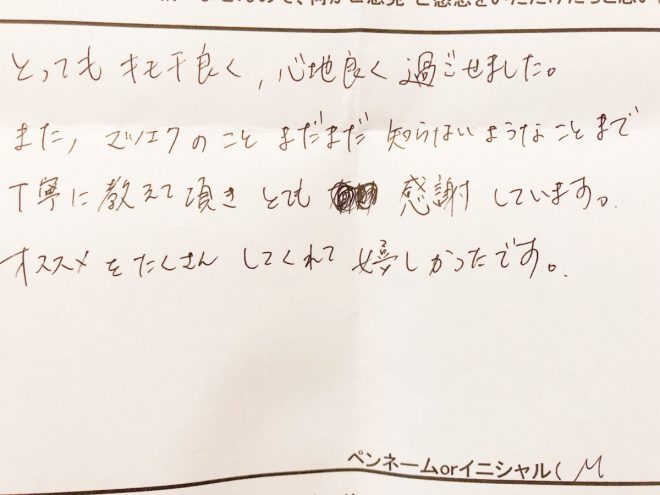 とっても キモチ良く, 心地良く 過ごせました。
また, マツエクの こと まだまだ 知らないようなことまで
丁寧に 教えて頂き とても 感謝 しています。
オススメ を たくさん してくれて 嬉しかったです。
ペンネームorイニシャル( M